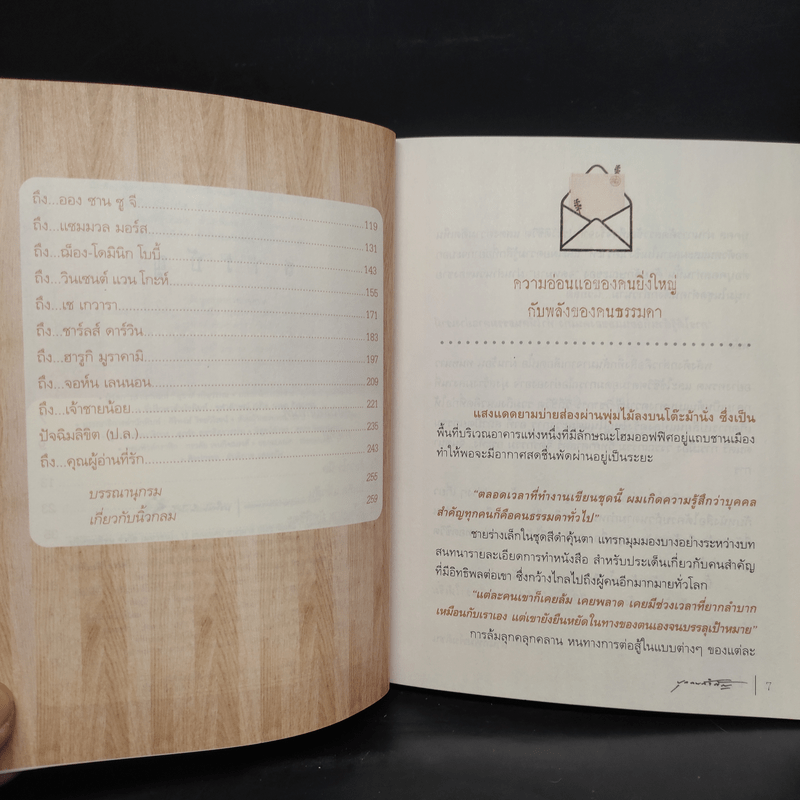 ถึง...ออง ซาน ซู จี 119
ถึง...แซมมวล มอร์ส 131
ถึง...ฌ็อง-โดมินิก โบบี้ 143
ถึง...วินเซนต์ แวน โกะห์ 155
ถึง...เช เกวารา 171
ถึง...ชาร์ลส์ ดาร์วิน 183
ถึง...ฮารูกิ มูราคามิ 197
ถึง...จอห์น เลนนอน 209
ถึง...เจ้าชายน้อย 221
ปัจฉิมลิขิต (ป.ล.) 235
ถึง...คุณผู้อ่านที่รัก 243
บรรณานุกรม 255
เกี่ยวกับนิ้วกลม 259
ความอ่อนแอของคนยิ่งใหญ่
กับพลังของคนธรรมดา
แสงแดดยามบ่ายส่องผ่านพุ่มไม้ลงบนโต๊ะม้านั่ง ซึ่งเป็น
พื้นที่บริเวณอาคารแห่งหนึ่งที่มีลักษณะโฮมออฟฟิศอยู่แถบชานเมือง
ทำให้พอจะมีอากาศสดชื่นพัดผ่านอยู่เป็นระยะ
"ตลอดเวลาที่ทำงานเขียนชุดนี้ ผมเกิดความรู้สึกว่าบุคคล
สำคัญทุกคนก็คือคนธรรมดาทั่วไป"
ชายร่างเล็กในชุดสีดำคุ้นตา แทรกมุมมองบางอย่างระหว่างบท
สนทนารายละเอียดการทำหนังสือ สำหรับประเด็นเกี่ยวกับคนสำคัญ
ที่มีอิทธิพลต่อเขา ซึ่งกว้างไกลไปถึงผู้คนอีกมากมายทั่วโลก
"แต่ละคนเขาก็เคยล้ม เคยพลาด เคยมีช่วงเวลาที่ยากลำบาก
เหมือนกับเราเอง แต่เขายังยืนหยัดในทางของตนเองจนบรรลุเป้าหมาย"
การล้มลุกคลุกคลาน หนทางการต่อสู้ในแบบต่างๆ ของแต่ละ
7